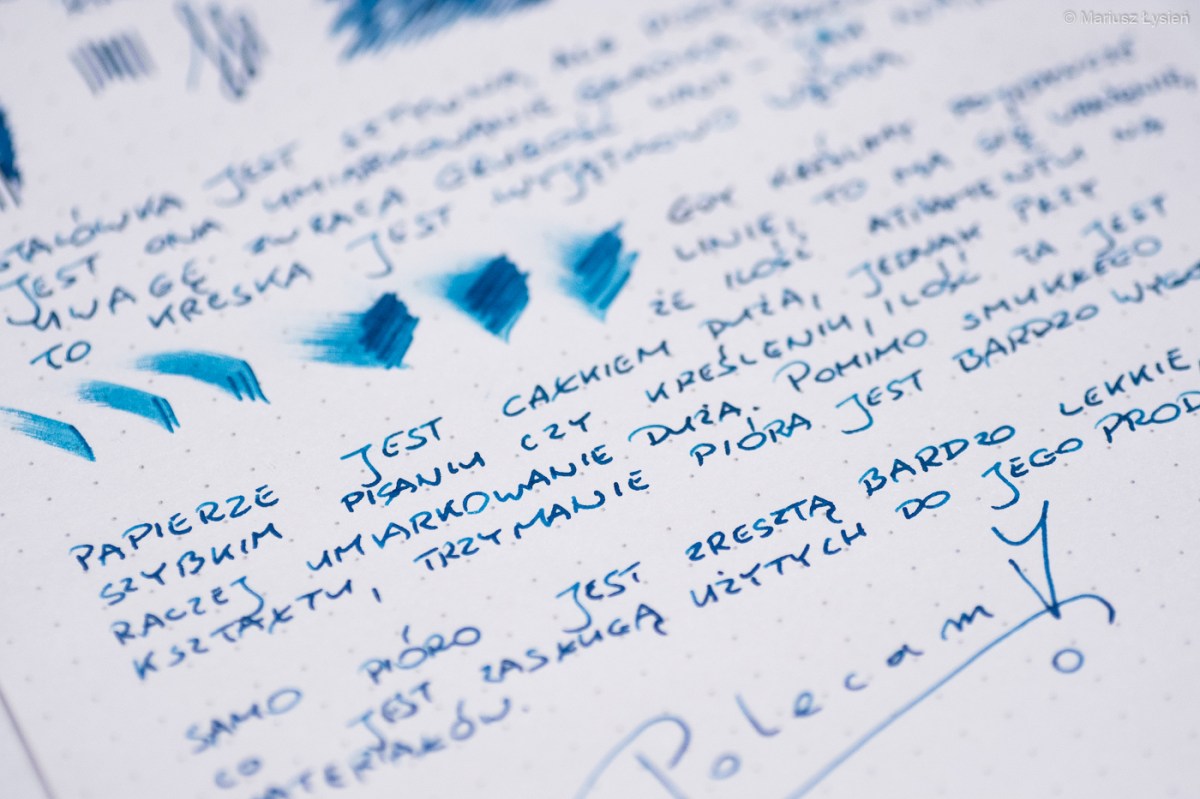 © Mariusz Łysień
STALÓWKA JEST SZTYWNA, ALE
JEST ONA UMIARKOWANIE
UWAGĘ ZWRACA GRUBOŚĆ LINII -
TO KRESKA JEST WYJĄTKOWO WĄSKA.
GDY KREŚLIMY
LINIE, TO MA SIĘ WRAŻENIE,
ŻE ILOŚĆ ATRAMENTU NA
PAPIERZE JEST CAŁKIEM DUŻA, JEDNAK PRZY
SZYBKIM PISANIU CZY KREŚLENIU, ILOŚĆ TA JEST
RACZEJ UMIARKOWANIE DUŻA. POMIMO SMUKŁEGO
KSZTAŁTU, TRZYMANIE PIÓRA JEST BARDZO WYGO
SAMO PIÓRO JEST ZRESZTĄ BARDZO LEKKIE,
CO JEST ZASŁUGĄ UŻYTYCH DO JEGO PROD
MATERIAŁÓW.
Polecam!